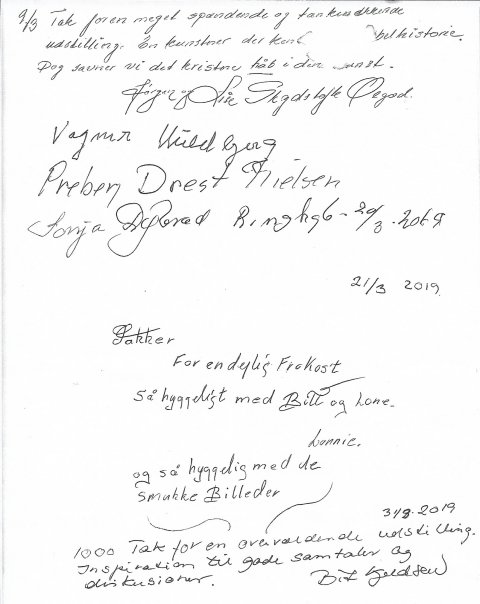 9/3 Tak for en meget spændende og tankevækkende
udstilling. En kunstner der kent bilhistorie.
Dog savner vi det kristne håb i den kunst.
Jørgen og
Vagner
Preben Drest Nielsen
Sonja Ringkøb - 20/3 - 2019
21/3 2019
Takker
For en dejlig Frokost
Så hyggeligt med Bitt og Lone.
Lonnie.
og så hyggelig med de
smukke Billeder
31/3-2019
1000 Tak for en overvældende udstilling.
Inspiration til gode samtaler og
diskusioner.